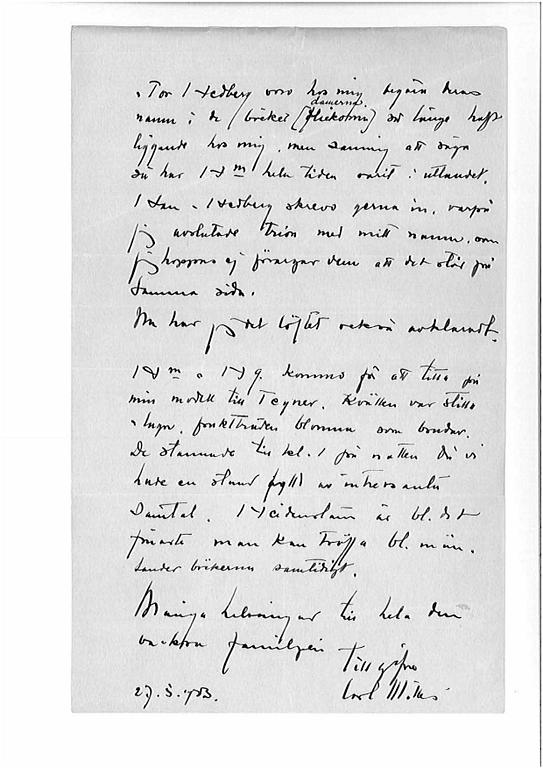 o Tor Hedberg voro hos mig begära deras
damerna
namn i de böcker (flickorna) så länge haft
liggande hos mig, men sanning att säga
så har Hm hela tiden varit i utlandet.
Han o Hedberg skrevo gerna in, varpå
jag avslutade trion med mitt namn, som
jag hoppas ej förargar dem att det står på
samma sida.
Nu har jag det löftet också avklarat.
Hm o Hg. kommo för att titta på
min modell till Tegner. Kvällen var stilla
o lugn, fruktträden blomma som brudar.
De stannade till kl. 1 på natten då vi
hade en stund fylld av intressanta
samtal. Heidenstam är bl. det
finaste man kan träffa bl. män.
Sänder böckerna samtidigt.
Många helsningar till hela den
vackra familjen
Tillgifne
27.5.1923. Carl Milles